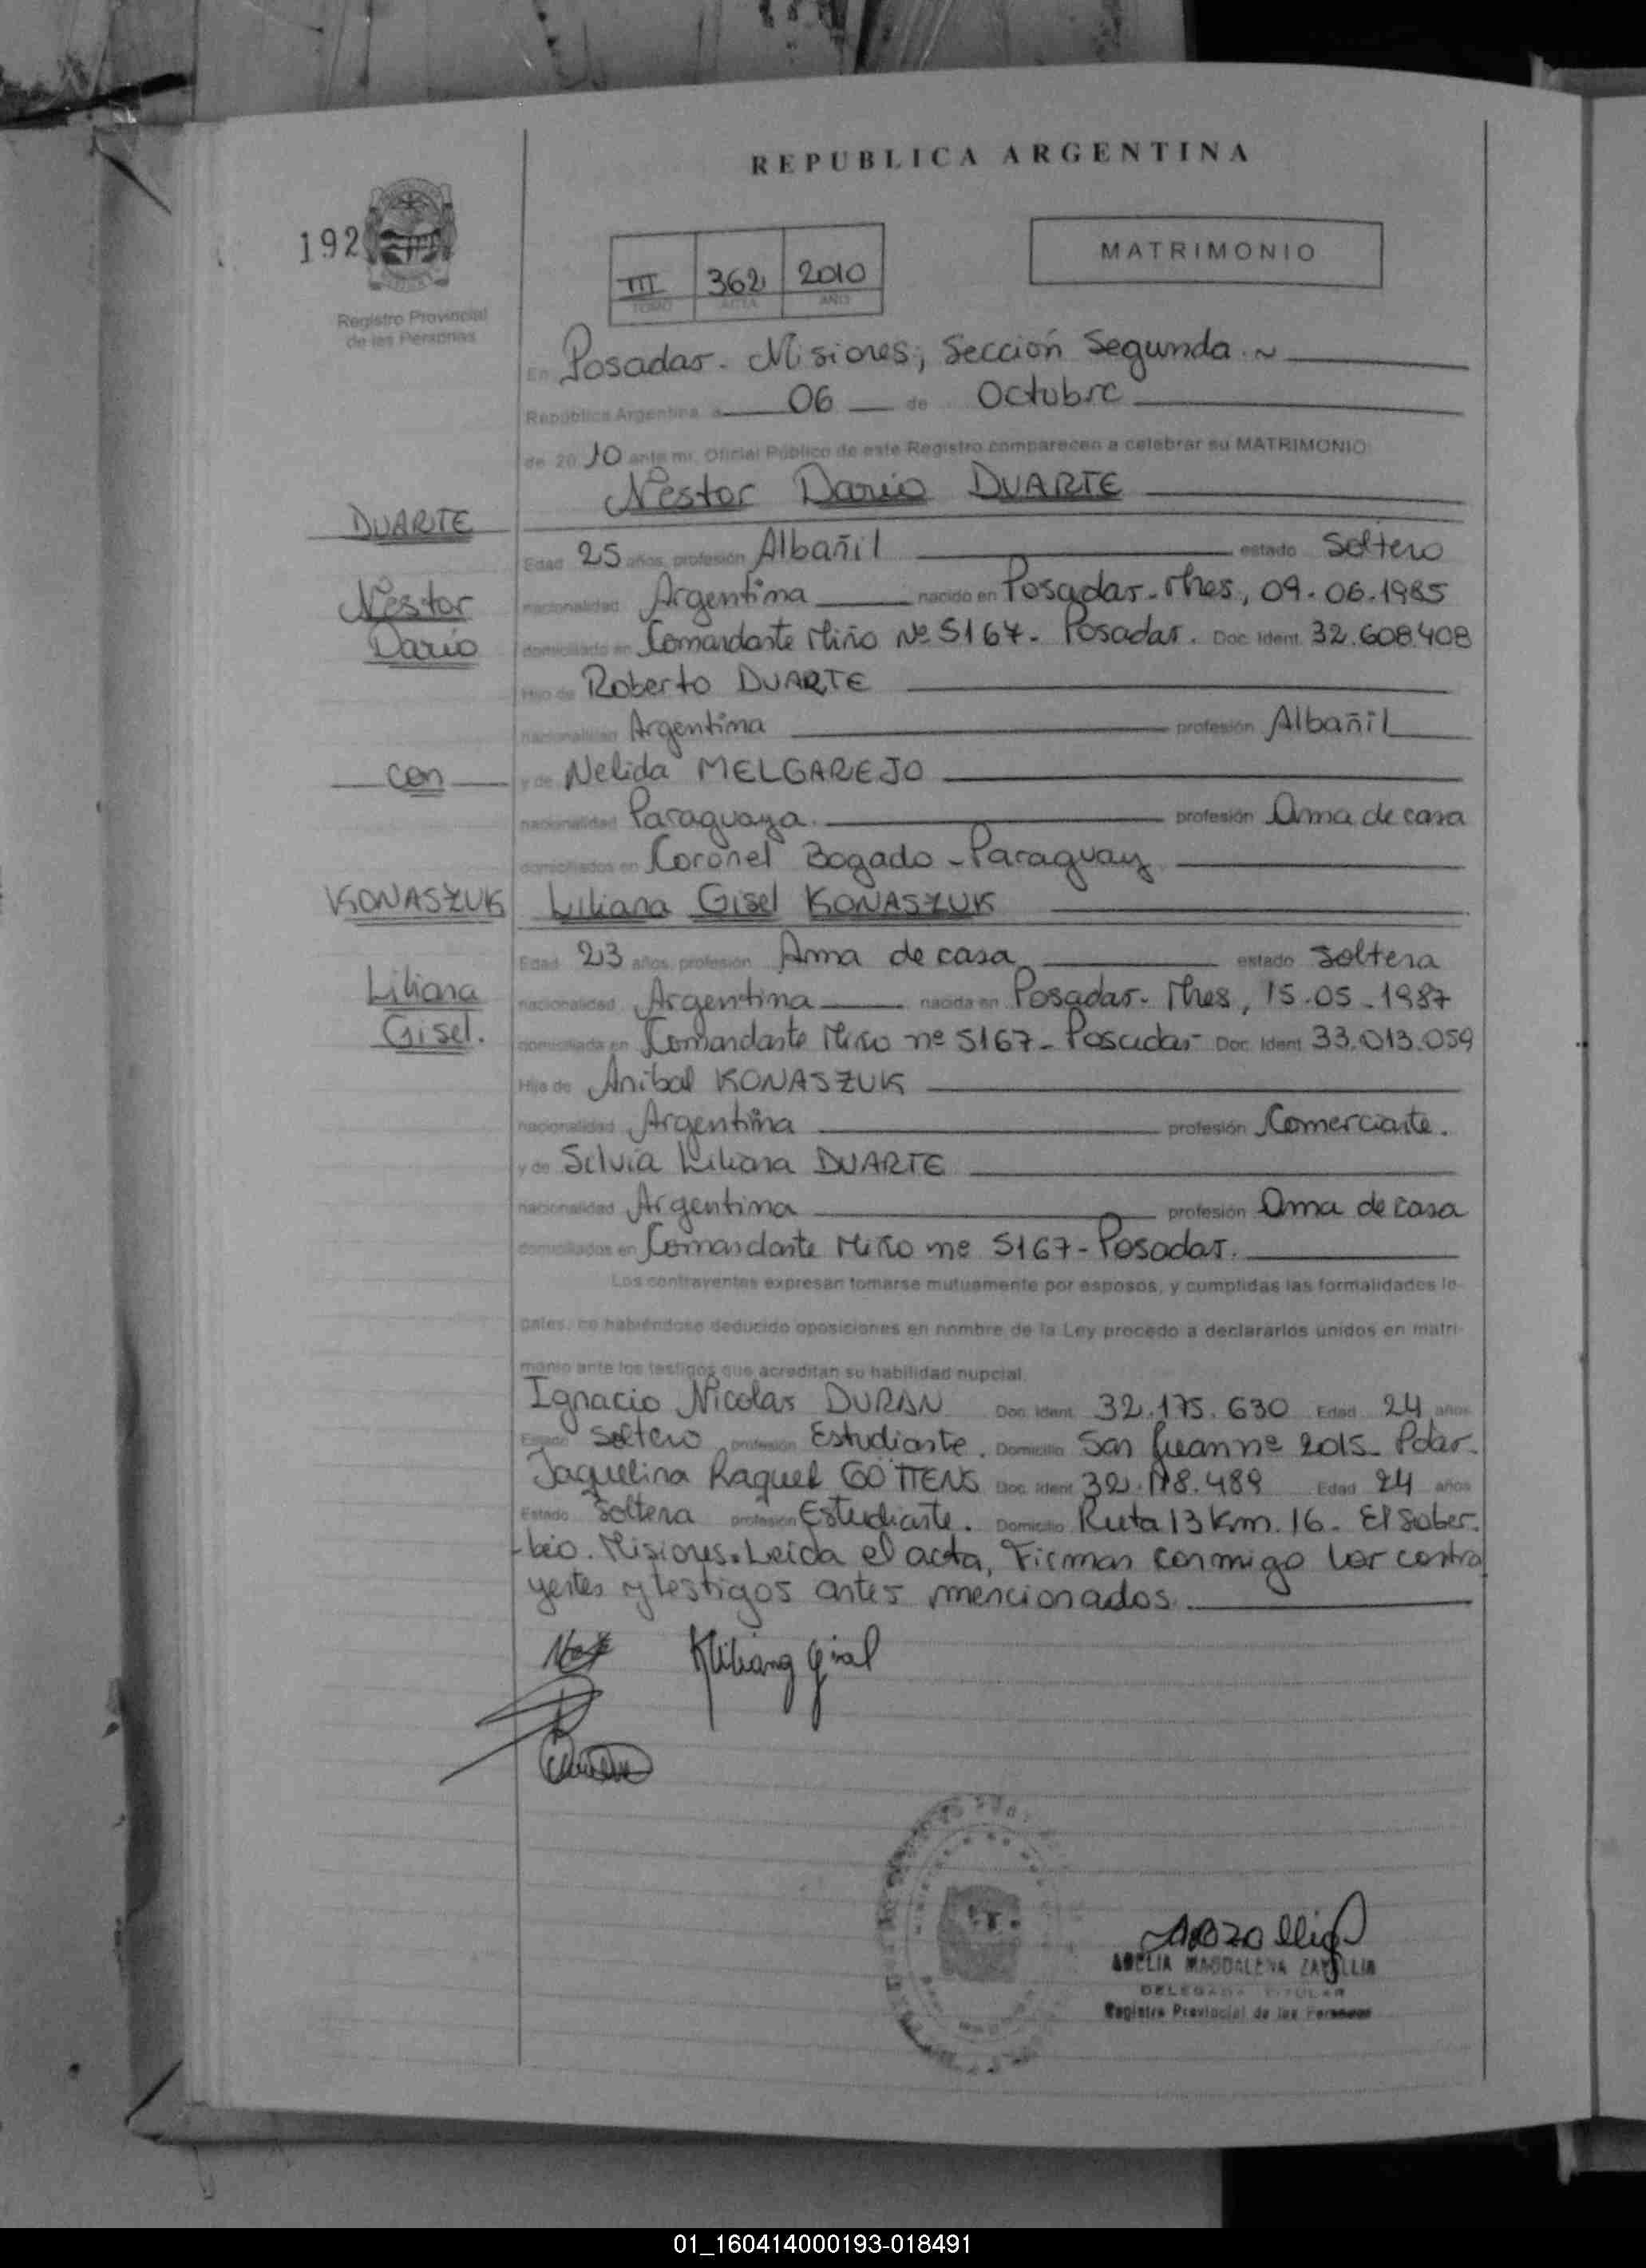 REPUBLICA ARGENTINA
192
MATRIMONIO
III 362 2010
TOMO ACTA AÑO
Registro Provincial
de las Personas
En Posadas. Misiones, Sección Segunda. ~
República Argentina a 06 de Octubre
de 2010 ante mí, Oficial Público de este Registro comparecen a celebrar su MATRIMONIO
Néstor Darío DUARTE
DUARTE
Edad 25 años, profesión Albañil estado Soltero
Néstor
nacionalidad Argentina nacido en Posadas - Mnes, 09.06.1985
Darío
domiciliado en Comandante Miño Nº 5167 - Posadas. Doc. Ident. 32.608.408
Hijo de Roberto DUARTE
nacionalidad Argentina profesión Albañil
con
y de Nelida MELGAREJO
nacionalidad Paraguaya. profesión Ama de casa
domiciliados en Coronel Bogado - Paraguay
KONASZUK
Liliana Gisel KONASZUK
Edad 23 años, profesión Ama de casa estado Soltera
Liliana
nacionalidad Argentina nacida en Posadas - Mnes, 15-05-1987
Gisel.
domiciliada en Comandante Miño nº 5167 - Posadas - Doc. Ident. 33.013.059
Hija de Anibal KONASZUK
nacionalidad Argentina profesión Comerciante.
y de Silvia Liliana DUARTE
nacionalidad Argentina profesión Ama de casa
domiciliados en Comandante Miño nº 5167 - Posadas.
Los contrayentes expresan tomarse mutuamente por esposos, y cumplidas las formalidades le-
gales, no habiéndose deducido oposiciones en nombre de la Ley procedo a declararlos unidos en matri-
monio ante los testigos que acreditan su habilidad nupcial.
Ignacio Nicolas DURAN Doc. Ident. 32.175.630 Edad 24 años
Estado Soltero profesión Estudiante. Domicilio San Juan nº 2015 - Pdas.
Jaquelina Raquel GÖTTENS Doc. Ident. 32.178.489 Edad 24 años
Estado Soltera profesión Estudiante. Domicilio Ruta 13 Km. 16 - El Sober-
-bio. Misiones. Leida el acta, Firman conmigo los contra
yentes y testigos antes mencionados
KLiliana Gisel
ADELIA MAGDALENA ZARZILLIA
DELEGADA TITULAR
Registro Provincial de las Personas
01_160414000193-018491